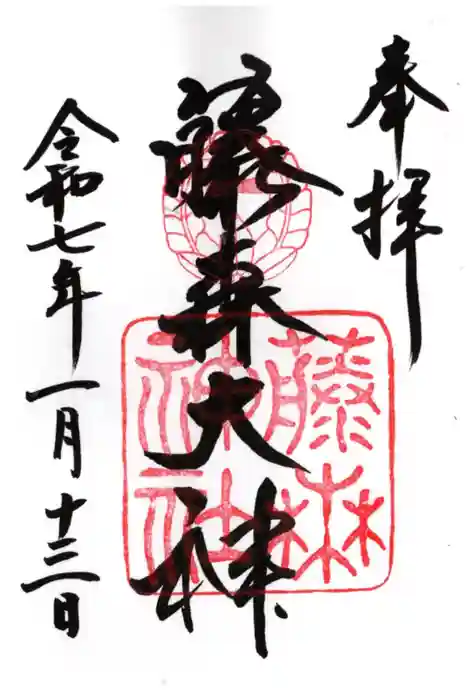 奉拝
藤森大神
藤森
神社
令和七年一月十三日